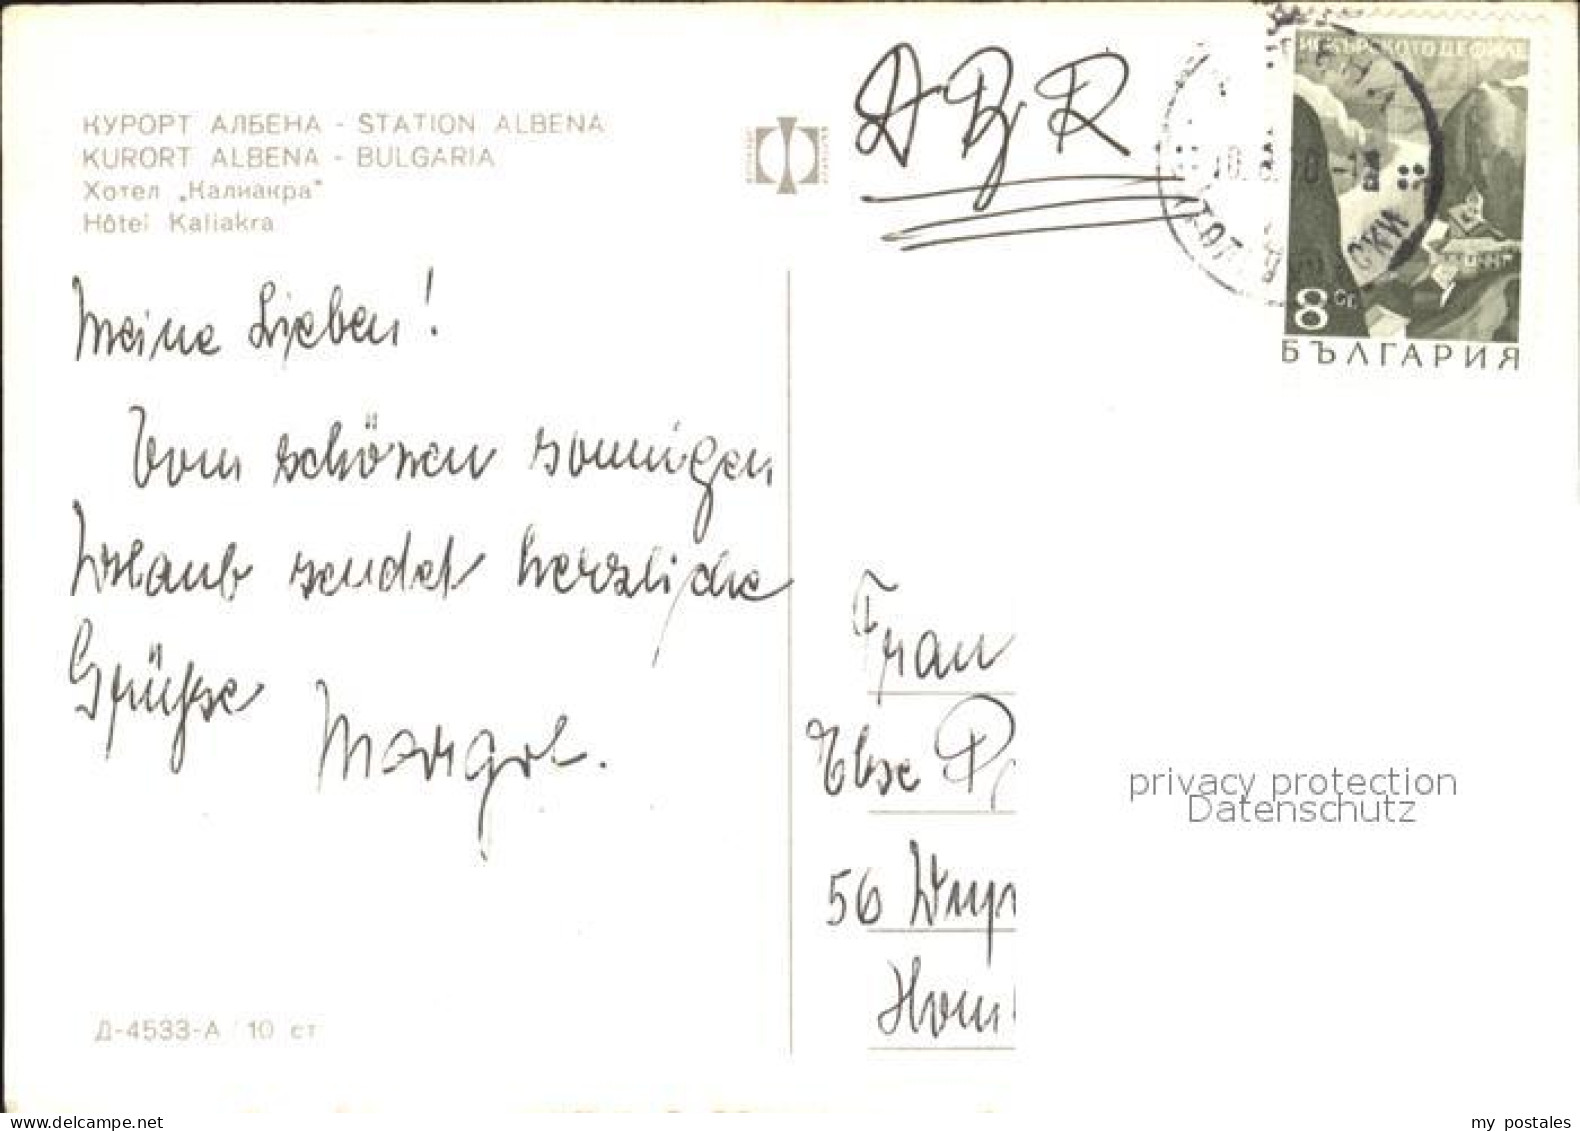 КУРОРТ АЛБЕНА - STATION ALBENA
KURORT ALBENA - BULGARIA
Хотел „Калиакра"
Hôtel Kaliakra
ИСКЪРСКОТО ДЕФИЛЕ
8 СТ.
БЪЛГАРИЯ
Meine Lieben!
Vom schönen sonnigen
Urlaub sendet herzliche
Grüße Margot.
Frau
Else
56 Wupp
Hom
privacy protection
Datenschutz
Д-4533-А 10 ст
my postales